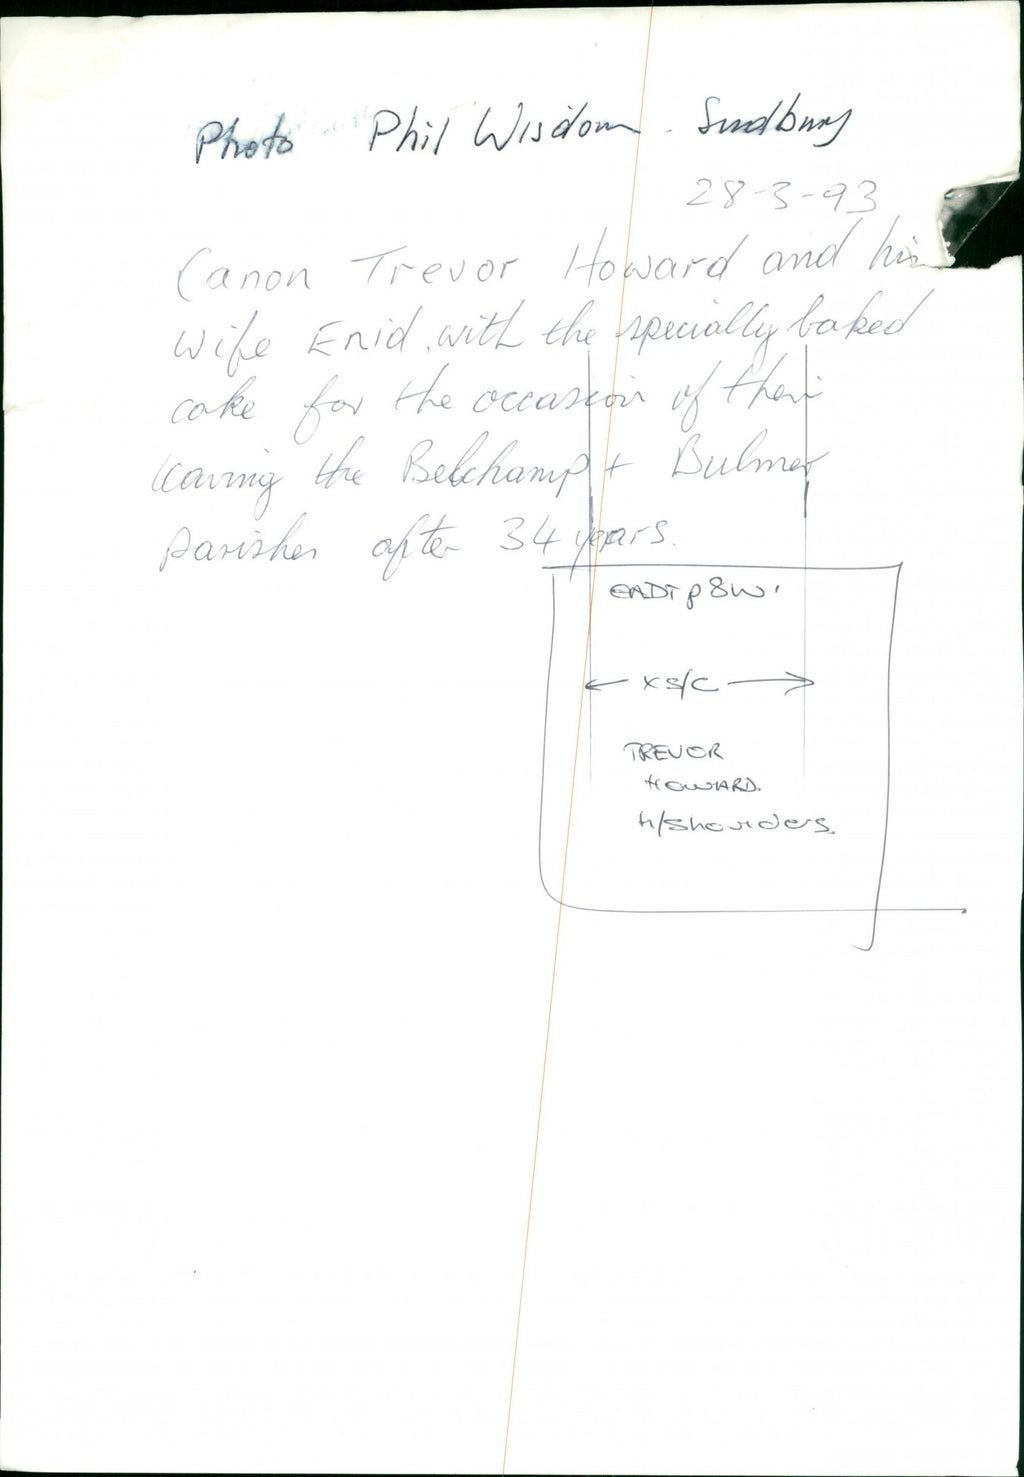 Photo Phil Wisdom. Sudbury
28-3-93
Canon Trevor Howard and his
wife Enid, with the specially baked
cake for the occasion of their
leaving the Belchamp + Bulmer
parishes after 34 years.
EADT p8w.
← x s/c →
TREVOR
HOWARD.
H/Shoulders.